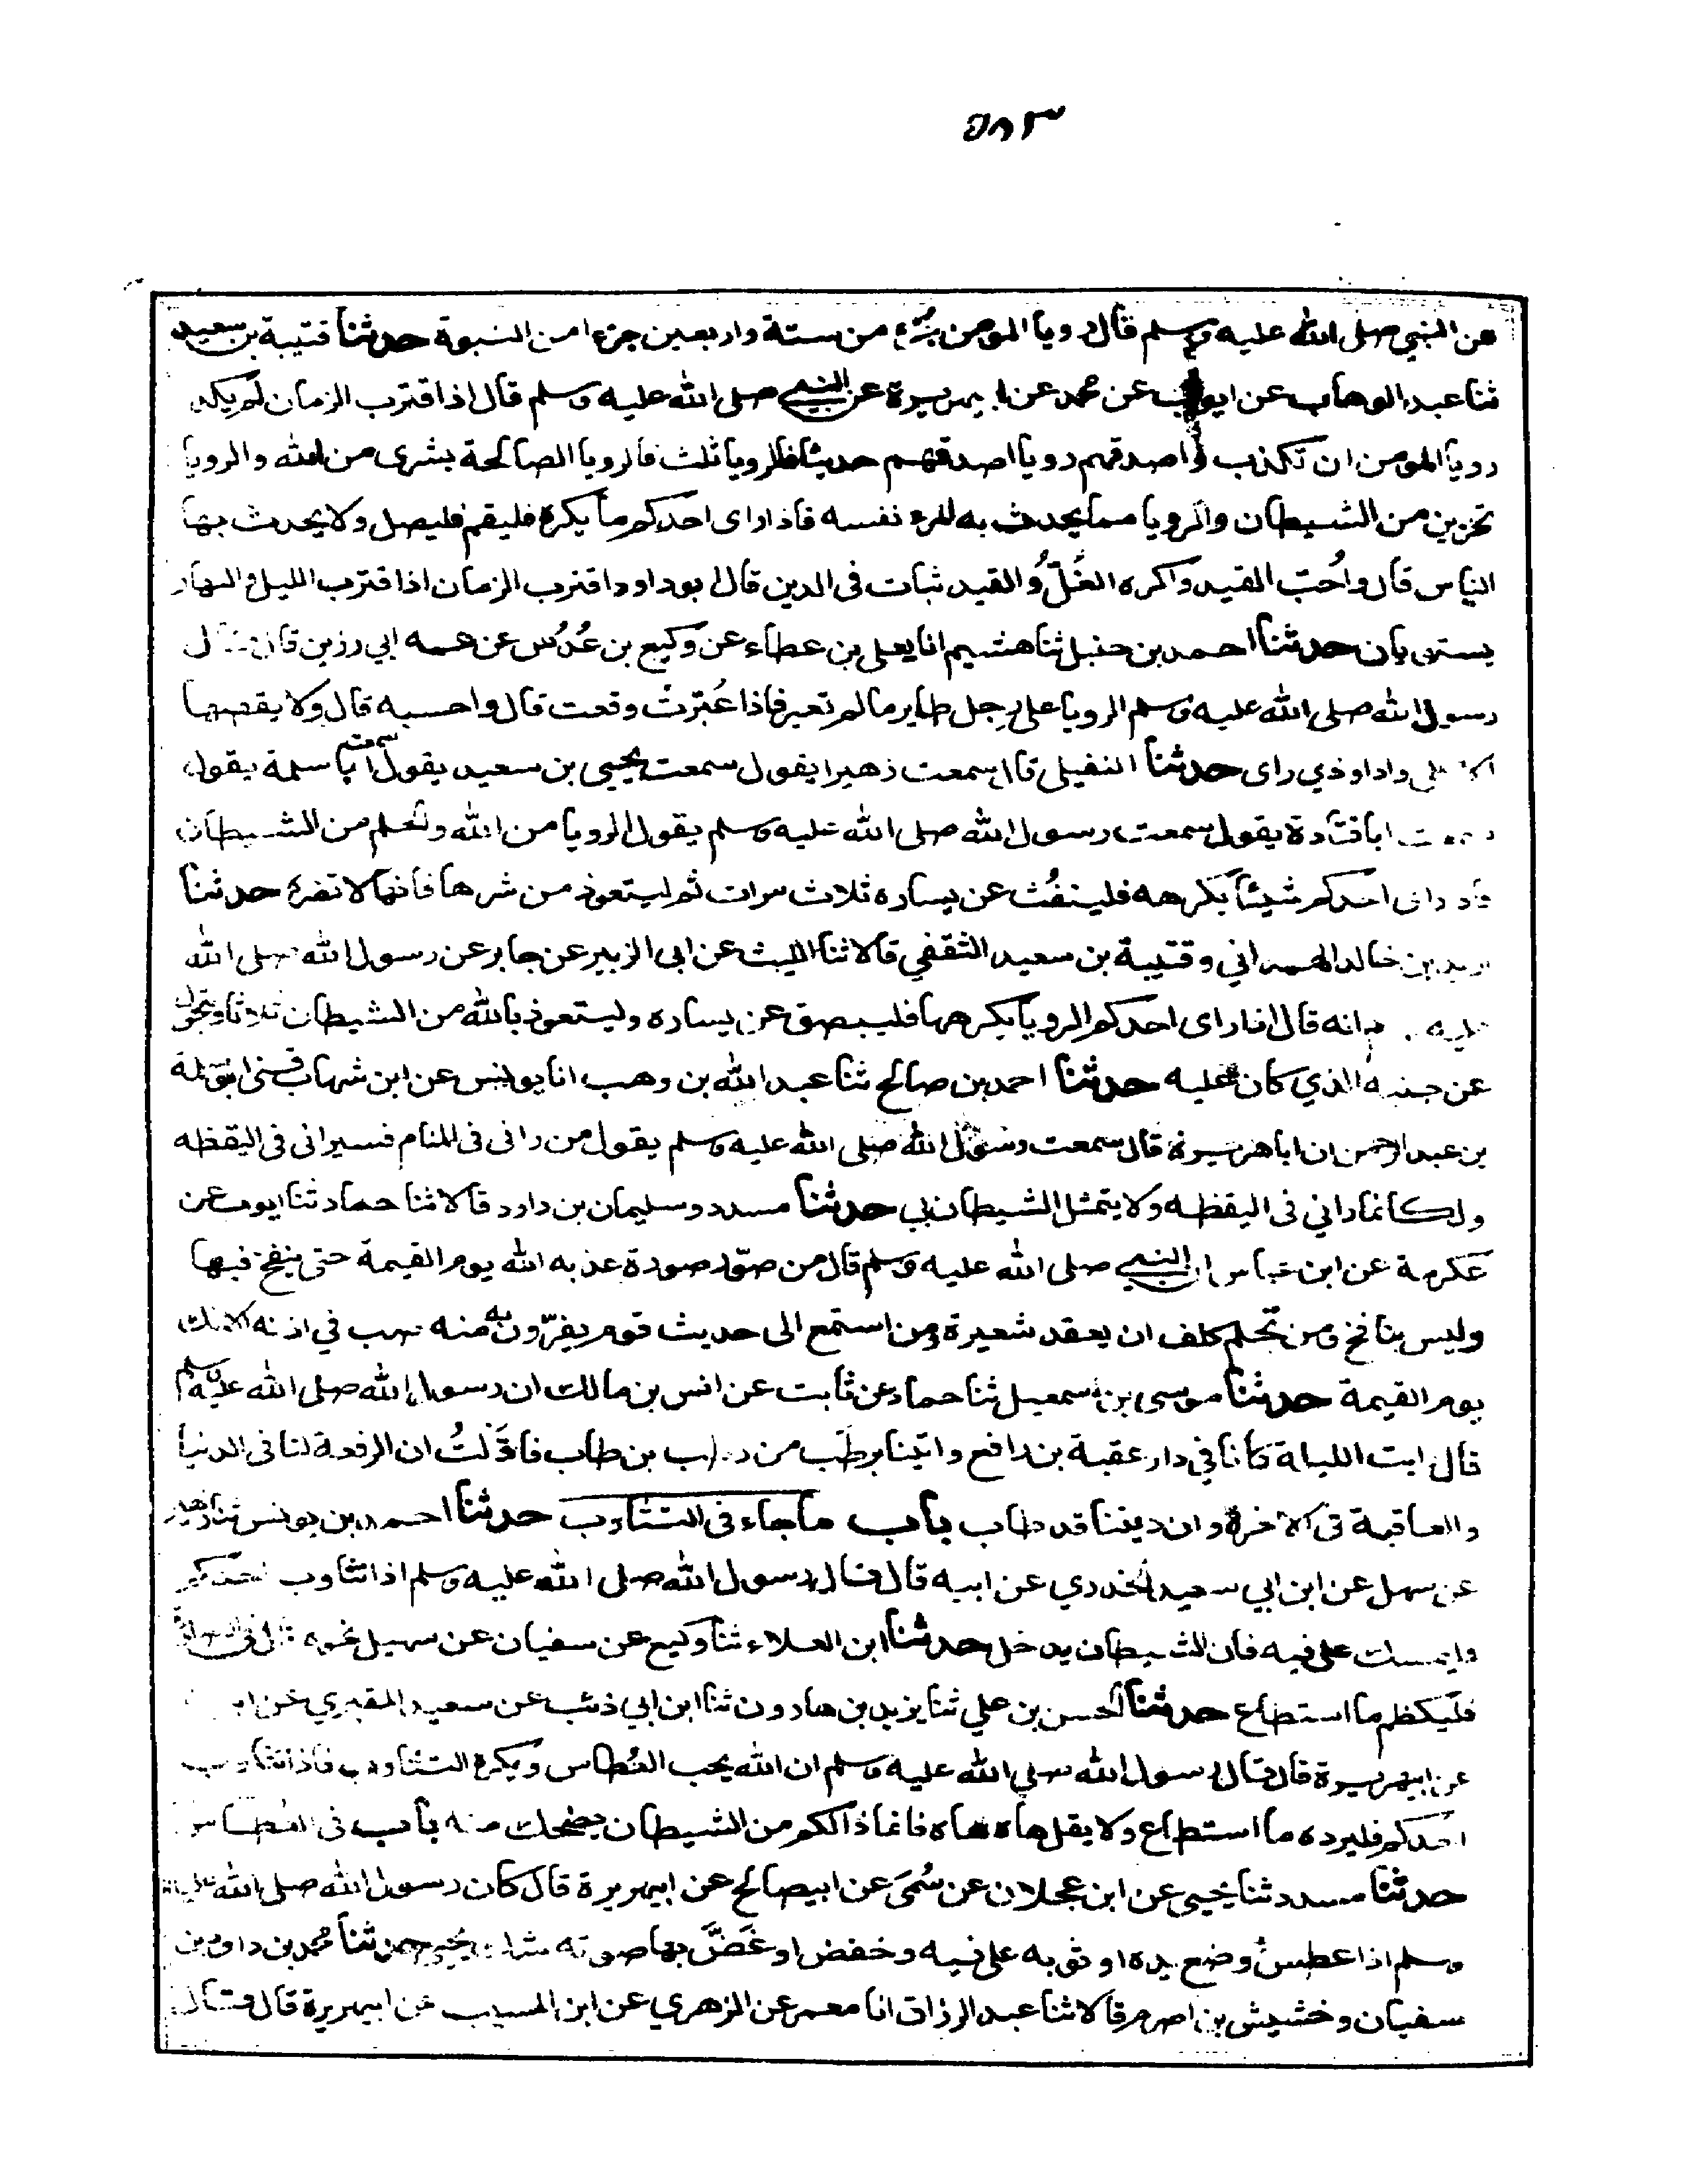 ٥٨٣
عن النبي صلى الله عليه وسلم قال رويا المومن جزء من ستة واربعين جزءا من النبوة حدثنا قتيبة بن سعيد
ثنا عبد الوهاب عن ايوب عن محمد عن ابيهريرة عن النبي صلى الله عليه وسلم قال اذا قترب الزمان لم يكد
رويا المومن ان تكذب واصدقهم رويا اصدقهم حديثا فالرويا ثلث فالرويا الصالحة بشرى من الله والرويا
تحزين من الشيطان والرويا مما يحدث به المرء نفسه فاذا راى احدكم ما يكره فليقم فليصل ولا يحدث بها
الناس قال واُحبّ القيد واكره الغُلُّ والقيد ثبات فى الدين قال ابو داود اقترب الزمان اذا قترب الليل والنهار
يستويان حدثنا احمد بن حنبل ثنا هشيم انا يعلى بن عطاء عن وكيع بن عُدُس عن عمه ابي رزين قال قال
رسول الله صلى الله عليه وسلم الرويا على رجل طاير مالم تعبر فاذا عُبّرتْ وقعت قال واحسبه قال ولا يقصها
الا على واد او ذي راى حدثنا النفيلى قال سمعت زهيرا يقول سمعت يحيى بن سعيد يقول سمعت ابا سلمة يقول
سمعت ابا قتادة يقول سمعت رسول الله صلى الله عليه وسلم يقول الرويا من الله والحلم من الشيطان
فاذا راى احدكم شيئا يكرهه فلينفُث عن يساره ثلاث مرات ثم ليتعوذ من شرها فانها لا تضره حدثنا
يزيد بن خالد الهمداني وقتيبة بن سعيد الثقفي قالا ثنا الليث عن ابى الزبير عن جابر عن رسول الله صلى الله
عليه وسلم انه قال اذا راى احدكم الرويا يكرهها فليبصق عن يساره وليتعوذ بالله من الشيطان ثلاثا ويتحول
عن جنبه الذي كان عليه حدثنا احمد بن صالح ثنا عبد الله بن وهب انا يونس عن ابن شهاب اخبرنى ابو سلمة
بن عبد الرحمن ان ابا هريرة قال سمعت رسول الله صلى الله عليه وسلم يقول من رانى فى المنام فسيرانى فى اليقظه
ولكانما راني فى اليقظه ولا يتمثل الشيطان بي حدثنا مسدد وسليمان بن داود قالا ثنا حماد ثنا ايوب عن
عكرمة عن ابن عباس ان النبي صلى الله عليه وسلم قال من صوّر صورة عذبه الله يوم القيمة حتى ينفخ فيها
وليس بنافخ ومن تحلم كلف ان يعقد شعيرة ومن استمع الى حديث قوم يفرّون به منه صب في اذنه الانك
يوم القيمة حدثنا موسى بن اسمعيل ثنا حماد عن ثابت عن انس بن مالك ان رسول الله صلى الله عليه وسلم
قال رايت الليلة كانا في دار عقبة بن رافع واتينا برطَب من رطب بن طاب فاوّلتُ ان الرفعة لنا فى الدنيا
والعاقبة فى الاخرة وان ديننا قد طاب باب ما جاء فى التثاوب حدثنا احمد بن يونس ثنا زهير
عن سهل عن ابن ابي سعيد الخدري عن ابيه قال قال رسول الله صلى الله عليه وسلم اذا تثاوب احدكم
فليمسك على فيه فان الشيطان يدخل حدثنا ابن العلاء ثنا وكيع عن سفيان عن سهيل نحوه قال فى الصلاة
فليكظم ما استطاع حدثنا الحسن بن علي ثنا يزيد بن هارون ثنا ابن ابي ذئب عن سعيد المقبري عن ابيه
عن ابيهريرة قال قال رسول الله صلي الله عليه وسلم ان الله يحب العُطاس ويكره التثاوب فاذا تثاوب
احدكم فليرده ما استطاع ولا يقل هاه هاه فانما ذالكم من الشيطان يضحك منه باب فى العطاس
حدثنا مسدد ثنا يحيى عن ابن عجلان عن سُمَى عن ابيصالح عن ابيهريرة قال كان رسول الله صلى الله عليه
وسلم اذا عطس وضع يده او ثوبه على فيه وخفض او غَضَّ بها صوته شك يحيى حدثنا محمد بن داود بن
سفيان وخشيش بن اصرم قالا ثنا عبد الرزاق انا معمر عن الزهري عن ابن المسيب عن ابيهريرة قال قال